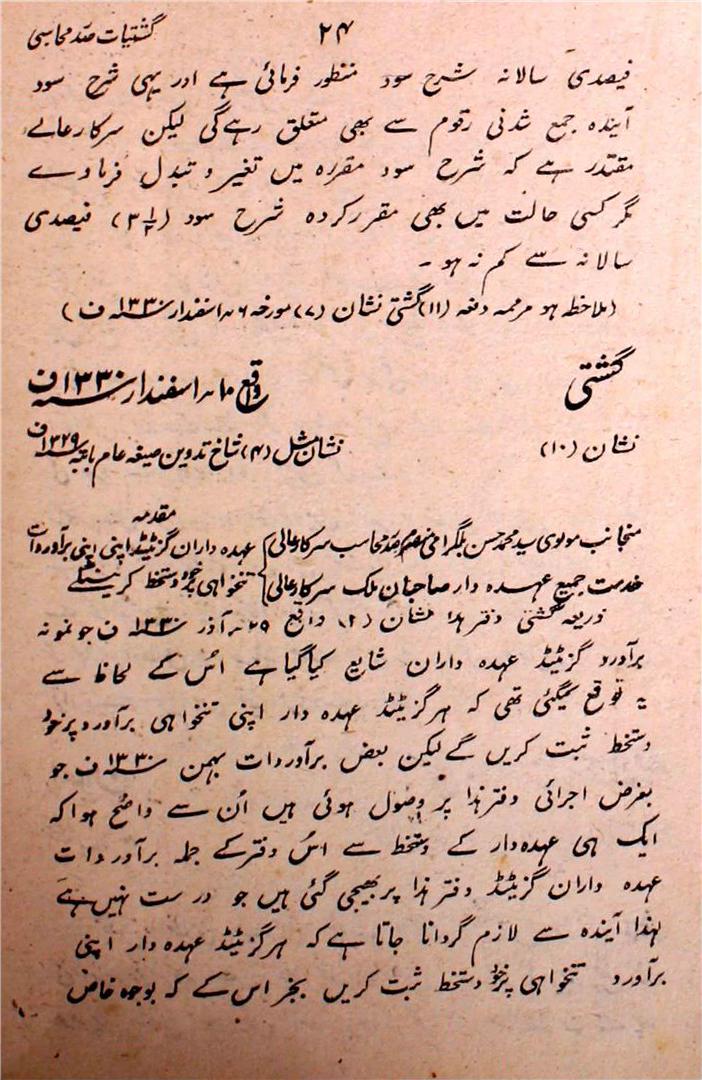 ۲۴ گشتیات صدر محاسبی
فیصدی سالانہ شرح سود منظور فرمائی ہے اور یہی شرح سود
آیندہ جمع شدنی رقوم سے بھی متعلق رہے گی لیکن سرکار عالے
مقتدر ہے کہ شرح سود مقررہ میں تغیر و تبدل فرمادے
مگر کسی حالت میں بھی مقرر کردہ شرح سود (۳½) فیصدی
سالانہ سے کم نہ ہو ۔
(ملاحظہ ہو مرممہ دفعہ (۱۱) گشتی نشان (۷) مورخہ ۶ اسفندار ۱۳۳۰ ف)
گشتی واقع ۱۰ ماہ اسفندار ۱۳۳۰ ف
نشان (۱۰) نشان مثل (۴) شاخ تدوین صیغہ عام بابتہ ۱۳۲۹ ف
مقدمہ
منجانب مولوی سید محمد حسن بلگرامی منصرم صدر محاسب سرکار عالی عہدہ داران گزیٹیڈ اپنی اپنی برآوردات
خدمت جمیع عہدہ دار صاحبان ملک سرکار عالی تنخواہی پر خود دستخط کرینگے
ذریعہ گشتی دفتر ہذا نشان (۲) واقع ۲۹ آذر ۱۳۳۰ ف جو نمونہ
برآورد گزیٹیڈ عہدہ داران شایع کیا گیا ہے اس کے لحاظ سے
یہ توقع کیگئی تھی کہ ہر گزیٹیڈ عہدہ دار اپنی تنخواہی برآورد پر خود
دستخط ثبت کریں گے لیکن بعض برآوردات بہمن ۱۳۳۰ ف جو
بغرض اجرائی دفتر ہذا پر وصول ہوئی ہیں اُن سے واضح ہوا کہ
ایک ہی عہدہ دار کے دستخط سے اُس دفتر کے جملہ برآوردات
عہدہ داران گزیٹیڈ دفتر ہذا پر بھیجی گئی ہیں جو درست نہیں ہے
لہذا آیندہ سے لازم گردانا جاتا ہے کہ ہر گزیٹیڈ عہدہ دار اپنی
برآورد تنخواہی پر خود دستخط ثبت کریں بجز اس کے کہ بوجوہ خاص